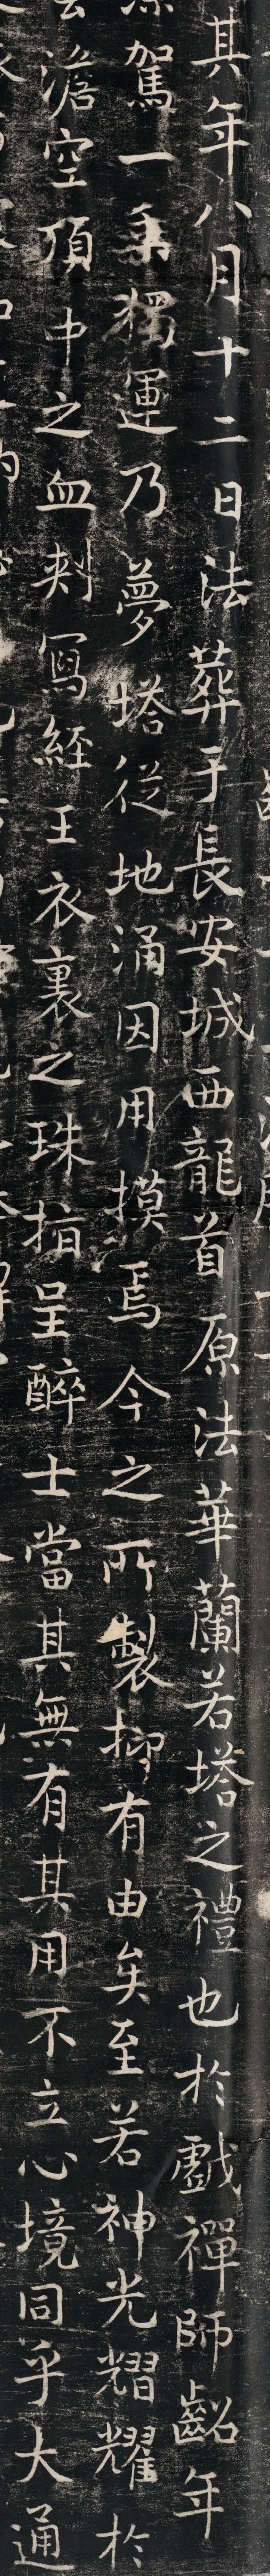 其年八月十二日法葬于長安城西龍首原法華蘭若塔之禮也於戲禪師齠年
駕一乘獨運乃夢塔從地涌因用摸焉今之所製抑有由矣至若神光熠耀於
澹空頂中之血刾寫經王衣裏之珠指呈醉士當其無有其用不立心境同乎大通